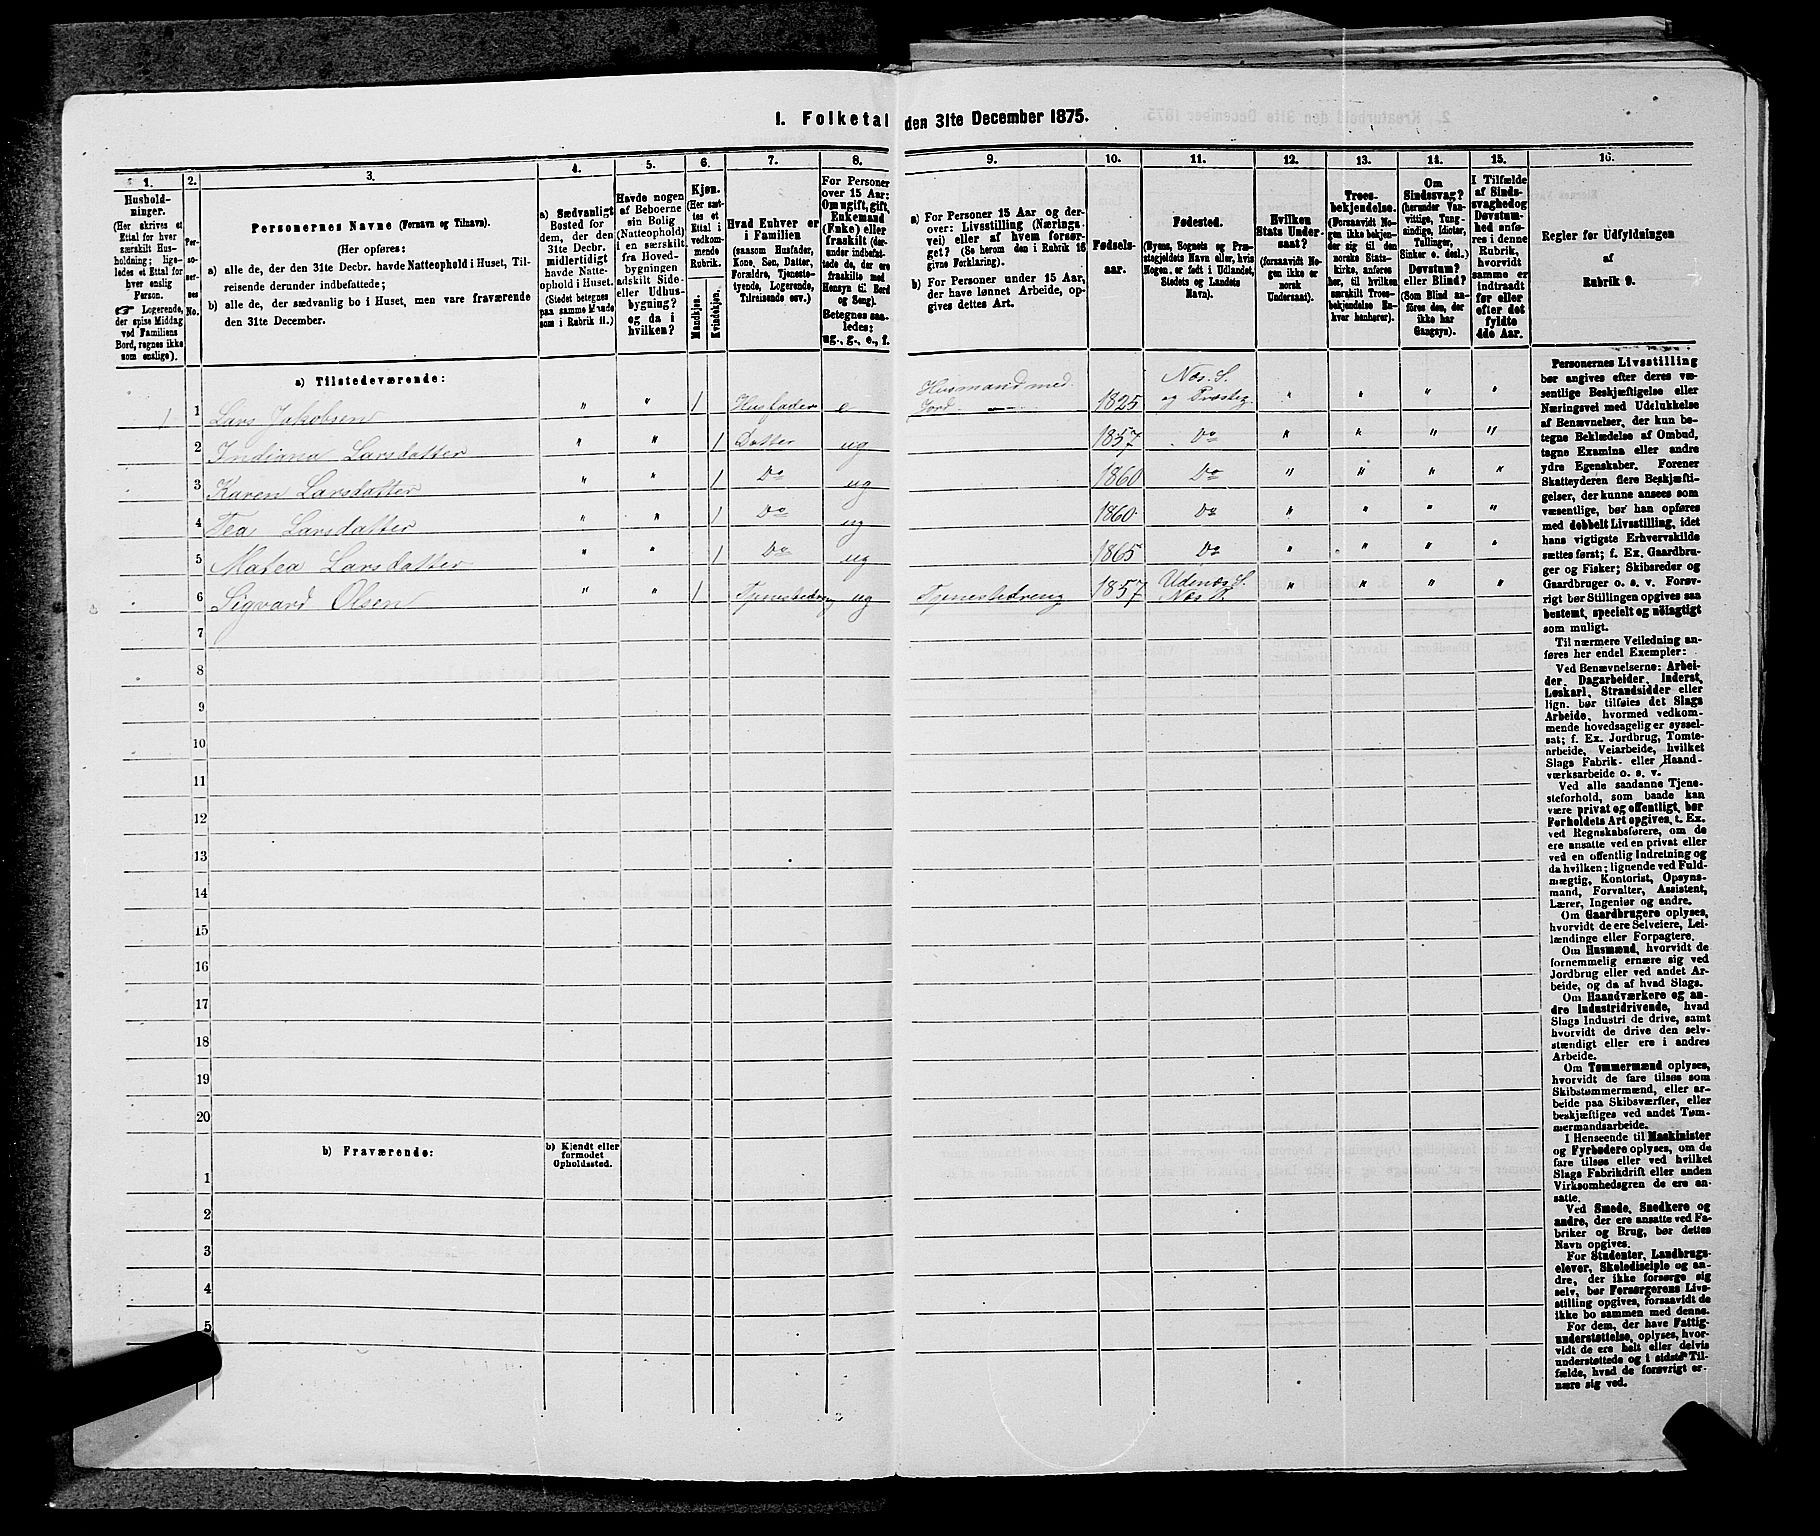 I. Folketal den 31te December 1875.
1. 2. 3. 4. 5. 6. 7. 8. 9. 10. 11. 12. 13. 14. 15. 16.
Husholdninger.
(Her skrives et
Ettal for hver
særskilt Husholdning;
ligeledes et Ettal for
hver enslig
Person.
☞ Logerende,
der spise Middag
ved Familiens
Bord, regnes ikke
som enslige).
Personernes No.
Personernes Navne (Fornavn og Tilnavn).
(Her opføres:
a) alle de, der den 31te Decbr. havde Natteophold i Huset, Tilreisende derunder indbefattede;
b) alle de, der sædvanlig bo i Huset, men vare fraværende
den 31te December.
a) Sædvanligt
Bosted for
dem, der den
31te Decbr.
midlertidigt
havde Natteophold i Huset.
(Stedet betegnes
paa samme Maade
som i Rubrik 11.)
Havde nogen
af Beboerne
sin Bolig
(Natteophold)
i en særskilt
fra Hovedbygningen
adskilt Side-
eller Udhusbygning?
og da i
hvilken?
Kjøn.
(Her sættes et
Ettal i
vedkommende
Rubrik.
Mandkjøn.
Kvindekjøn.
Hvad Enhver er
i Familien
(saasom Husfader,
Kone, Søn, Datter,
Forældre, Tjenestetyende, Logerende,
Tilreisende osv.)
For Personer
over 15 Aar:
Om ugift, gift,
Enkemand
(Enke) eller
fraskilt (derindbefattede de, der ere
fraskilte med
Hensyn til Bord
og Seng).
Betegnes saaledes:
ug., g., e., f.
a) For Personer 15 Aar og derover: Livsstilling (Næringsvei) eller af hvem forsørget? (Se herom den i Rubrik 16
givne Forklaring).
b) For Personer under 15 Aar,
der have lønnet Arbeide, opgives dettes Art.
Fødselsaar.
Fødested.
(Byens, Sognets og Præstegjeldets Navn eller, hvis
Nogen er født i Udlandet,
Stedets og Landets
Navn).
Hvilken
Stats Undersaat?
(forsaavidt Nogen ikke er
norsk
Undersaat).
Troesbekjendelse.
(Forsaavidt Nogen ikke bekjender sig til den
norske Statskirke, anføres
her, til hvilken
særskilt Troesbekjendelse Enhver henhører).
Om
Sindssvag?
(herunder Vanvittige, Tungsindige, Idioter,
Tullinger,
Sinker o. desl.)
Døvstum?
eller Blind?
(Som Blind anføres den, der
ikke har
Gangsyn).
I Tilfælde
af Sindssvaghed og
Døvstumhed anføres i denne
Rubrik,
hvorvidt
samme er
indtraadt
før eller
efter det
fyldte
4de Aar.
Regler for Udfyldningen
af
Rubrik 9.
a) Tilstedeværende:
1 1 Lars Jakobsen " " 1 Husfader e Husmand med Jord 1825 Næs. S. og Præsteg " " " "
2 Indiana Larsdatter " " 1 Datter ug 1857 Do " " " "
3 Karen Larsdatter " " 1 Do ug 1860 Do " " " "
4 Tea Larsdatter " " 1 Do ug 1860 Do " " " "
5 Matea Larsdatter " " 1 Do ug 1865 Do " " " "
6 Sigvard Olsen " " 1 Tjenestedreng ug Tjenestedreng 1857 Udenæs S. Næs P. " " " "
7
8
9
10
11
12
13
14
15
16
17
18
19
20
b) Fraværende:
b) Kjendt eller
formodet
Opholdssted.
1
2
3
4
5
Personernes Livsstilling
bør angives efter deres væsentlige Beskjæftigelse eller
Næringsvei med Udelukkelse
af Benævnelser, der kun betegne Beklædelse af Ombud,
tagne Examina eller andre
ydre Egenskaber. Forener
Skatteyderen flere Beskjæftigelser, der kunne ansees som
væsentlige, bør han opføres
med dobbelt Livsstilling, idet
hans vigtigste Erhvervskilde
sættes først; f. Ex. Gaardbruger og Fisker; Skibsreder og
Gaardbruger o. s. v. Forøvrigt bør Stillingen opgives saa
bestemt, specielt og nøiagtigt
som muligt.
Til nærmere Veiledning anføres her endel Exempler:
Ved Benævnelserne: Arbeider, Dagarbeider, Inderst,
Løskarl, Strandsidder eller
lign. bør tilføies det Slags
Arbeide, hvormed vedkommende hovedsagelig er sysselsat; f. Ex. Jordbrug, Tomtearbeide, Veiarbeide, hvilket
Slags Fabrik- eller Haandværksarbeide o. s. v.
Ved alle saadanne Tjenesteforhold, som baade kan
være privat og offentligt, bør
Forholdets Art opgives, t. Ex.
ved Regnskabsførere, om de
ere ansatte ved en privat eller
ved en offentlig Indretning og
da hvilken; lignende ved Fuldmægtig, Kontorist, Opsynsmand, Forvalter, Assistent,
Lærer, Ingeniør og andre.
Om Gaardbrugere oplyses,
hvorvidt de ere Selveiere, Leilændinge eller Forpagtere.
Om Husmænd, hvorvidt de
fornemmelig ernære sig ved
Jordbrug eller ved andet Arbeide, og da af hvad Slags.
Om Haandværkere og andre Industridrivende, hvad
Slags Industri de drive, samt
hvorvidt de drive den selvstændigt eller ere i andres
Arbeide.
Om Tømmermænd oplyses,
hvorvidt de fare tilsøs som
Skibstømmermænd, eller arbeide paa Skibsværfter, eller
beskjæftiges ved andet Tømmermandsarbeide.
I Henseende til Maskinister
og Fyrbødere oplyses, om de
fare tilsøs eller ved hvilket
Slags Fabrikdrift eller anden
Virksomhedsgren de ere ansatte.
Ved Smede, Snedkere og
andre, der ere ansatte ved Fabriker og Brug, bør dettes
Navn opgives.
For Studenter, Landbrugselever, Skoledisciple og andre, der ikke forsørge sig
selv, bør Forsørgerens Livsstilling opgives, forsaavidt de
ikke bo sammen med denne.
For dem, der have Fattigunderstøttelse, oplyses, hvorvidt de ere helt eller delvis
understøttede og i sidste Tilfælde, hvad de forøvrigt ernære sig ved.